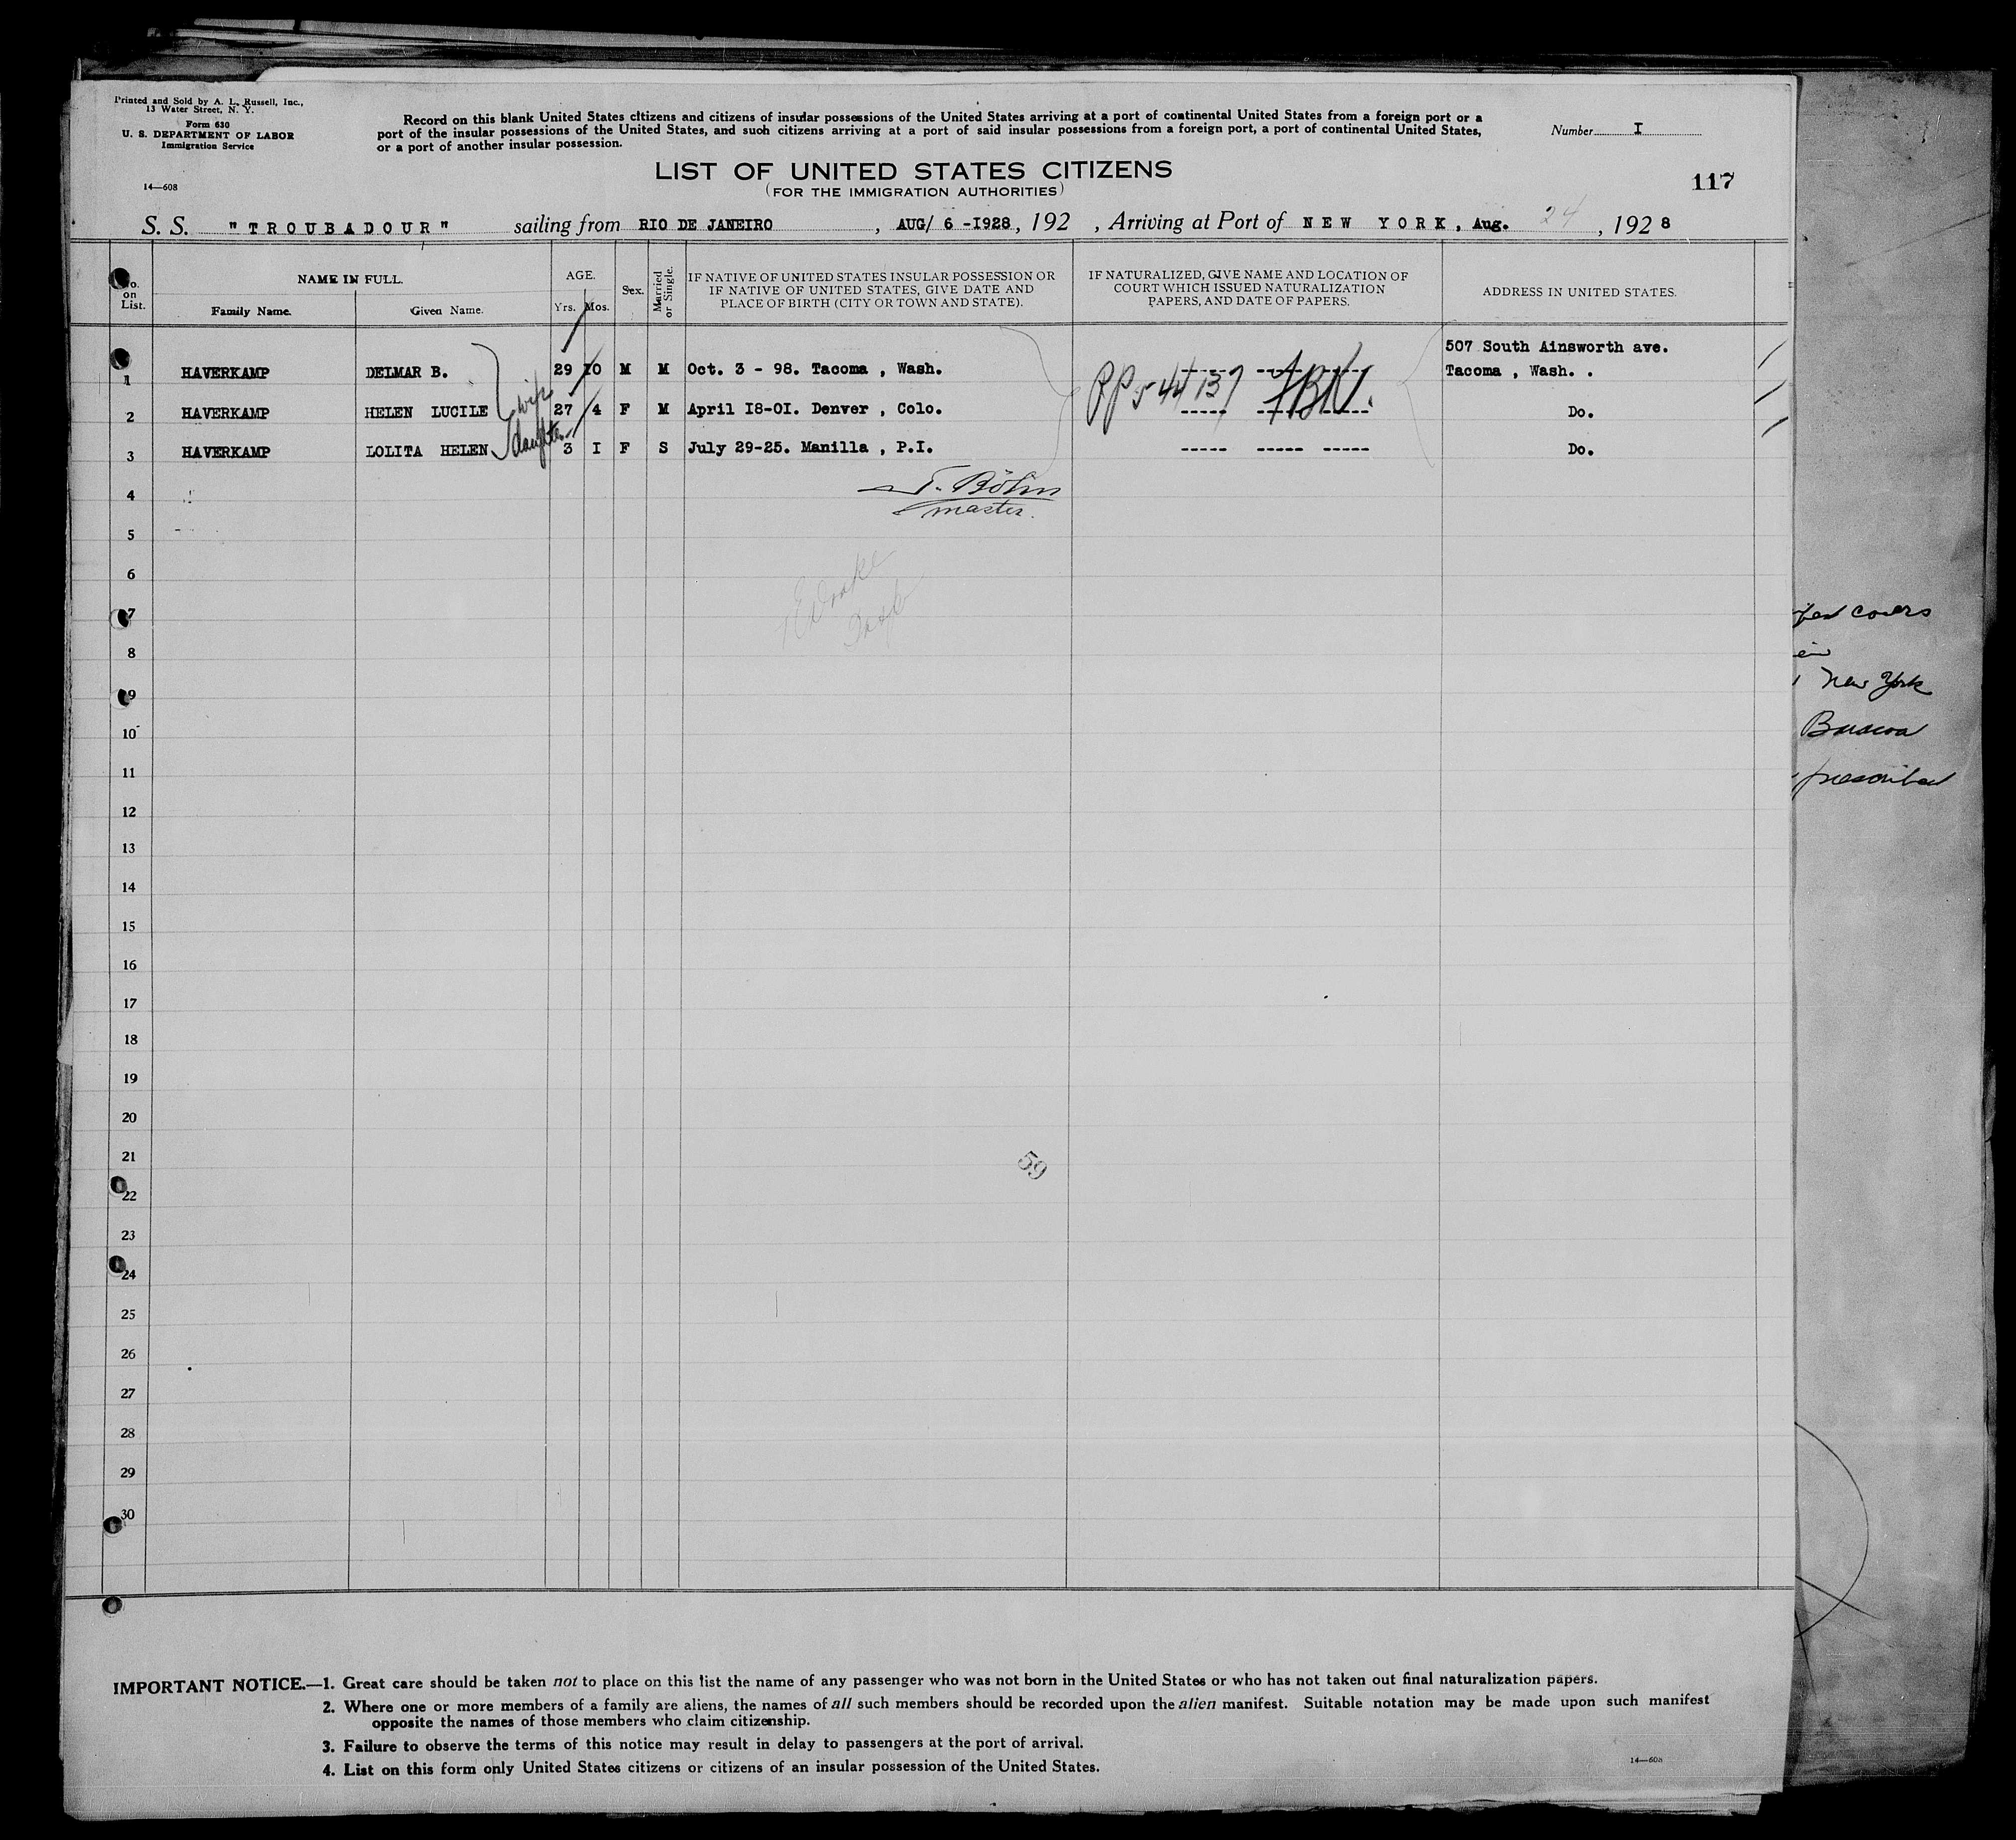 Printed and Sold by A. L. Russell, Inc.,
13 Water Street, N. Y.
Form 630
U. S. DEPARTMENT OF LABOR
Immigration Service
14—608
Record on this blank United States citizens and citizens of insular possessions of the United States arriving at a port of continental United States from a foreign port or a
port of the insular possessions of the United States, and such citizens arriving at a port of said insular possessions from a foreign port, a port of continental United States,
or a port of another insular possession.
Number I
LIST OF UNITED STATES CITIZENS
(FOR THE IMMIGRATION AUTHORITIES)
117
S. S. "TROUBADOUR" sailing from RIO DE JANEIRO, AUG/ 6 -I928, 192 , Arriving at Port of NEW YORK, Aug. 24, 1928
No. on List.
NAME IN FULL.
Family Name. Given Name.
AGE.
Yrs. Mos.
Sex.
Married or Single.
IF NATIVE OF UNITED STATES INSULAR POSSESSION OR
IF NATIVE OF UNITED STATES, GIVE DATE AND
PLACE OF BIRTH (CITY OR TOWN AND STATE).
IF NATURALIZED, GIVE NAME AND LOCATION OF
COURT WHICH ISSUED NATURALIZATION
PAPERS, AND DATE OF PAPERS.
ADDRESS IN UNITED STATES.
507 South Ainsworth ave.
1 HAVERKAMP DELMAR B. 29 I0 M M Oct. 3 - 98. Tacoma , Wash. ----- ----- ----- Tacoma , Wash. .
PP 544137
2 HAVERKAMP HELEN LUCILE wife 27 4 F M April I8-0I. Denver , Colo. ----- ----- ----- Do.
3 HAVERKAMP LOLITA HELEN daughter 3 I F S July 29-25. Manilla , P.I. ----- ----- ----- Do.
Böhm
master.
4
5
6
7
8
9
10
11
12
13
14
15
16
17
18
19
20
21
59
22
23
24
25
26
27
28
29
30
IMPORTANT NOTICE.—1. Great care should be taken not to place on this list the name of any passenger who was not born in the United States or who has not taken out final naturalization papers.
2. Where one or more members of a family are aliens, the names of all such members should be recorded upon the alien manifest. Suitable notation may be made upon such manifest
opposite the names of those members who claim citizenship.
3. Failure to observe the terms of this notice may result in delay to passengers at the port of arrival.
4. List on this form only United States citizens or citizens of an insular possession of the United States.
14—608
covers
New York
prescribed